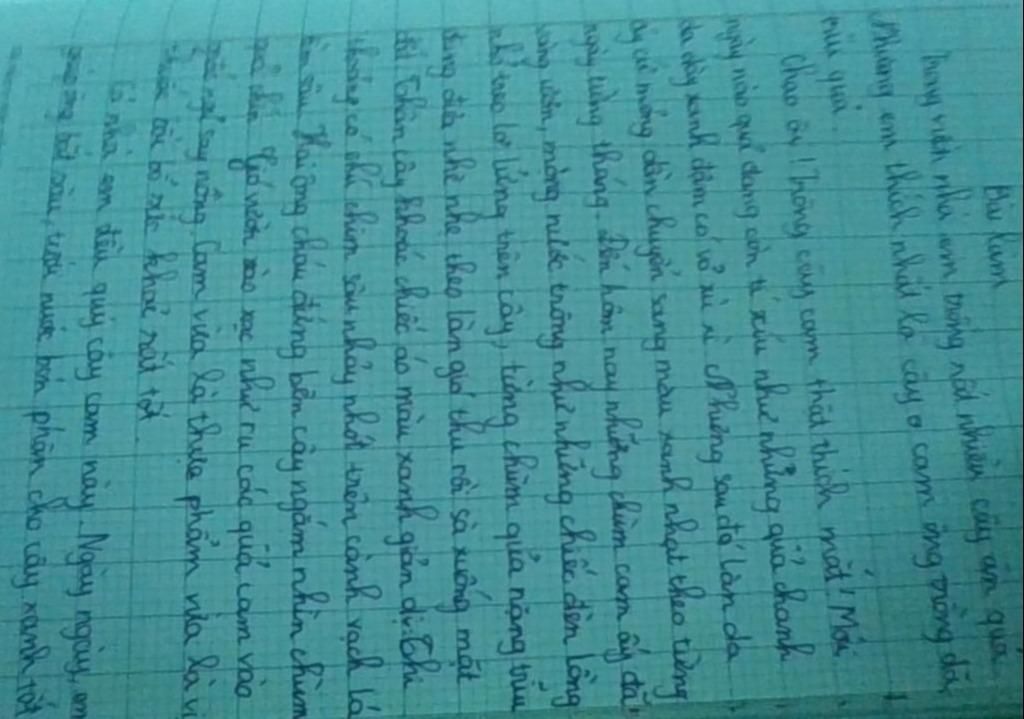 Bài làm
Trong vườn nhà em trồng rất nhiều cây ăn quả
Nhưng em thích nhất là cây cam ông trồng đã
Chao ôi! Trông cây cam thật thích mắt! Mới
ngày nào quả đang còn tí xíu như những quả chanh
da dày xanh đậm có vẻ xù xì. Nhưng sau đó làn da
ấy cứ mỏng dần chuyển sang màu xanh nhạt theo từng
ngày từng tháng. Đến hôm nay những chùm cam ấy đã
vàng ươm, mọng nước trông như những chiếc đèn lồng
nhỏ treo lơ lửng trên cây, từng chùm quả nặng trĩu
đung đưa nhè nhẹ theo làn gió thu rồi sà xuống mặt
đất. Thân cây khoác chiếc áo màu xanh giản dị. Thi
thoảng có chú chim sâu nhảy nhót trên cành vạch lá
tìm sâu. Hai ông cháu đứng bên cây ngắm nhìn chùm
quả chín. Gió vườn xào xạc như ru các quả cam vào
giấc ngủ say nồng. Cam vừa là thực phẩm vừa là vị
thuốc tốt bổ sức khoẻ rất tốt.
Cả nhà em đều quý cây cam này. Ngày ngày, em
giúp ông bắt sâu, tưới nước bón phân cho cây xanh tốt